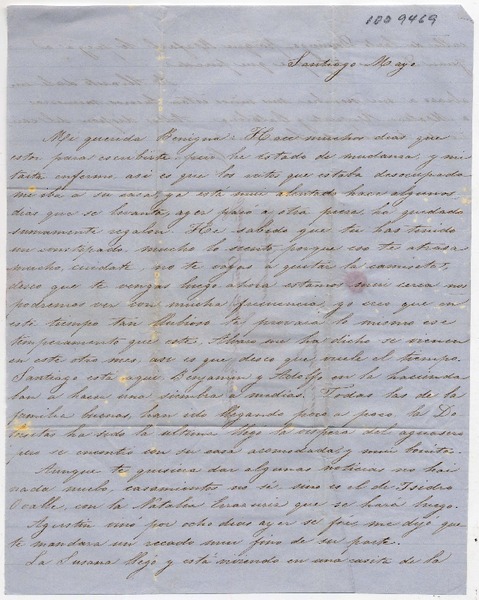 1009469
Santiago Mayo
Me querida Benigna: Hace muchos dias que
estoi para escribirte, pero he estado de mudanza, y mi
tatita enfermo, asi es que los ratos que estaba desocupada
me iba a su casa, ya está mui alentado hace algunos
dias que se levanta, ayer pasó a otra pieza, ha quedado
sumamente regalon. He sabido que tu has tenido
un constipado mucho lo siento porque eso te atrasa
mucho, cuidate no te vayas a quitar la camiseta,
deseo que te vengas luego ahora estamos mui cerca nos
podremos ver con mucha frecuencia, yo creo que en
este tiempo tan lluvioso te provará lo mismo ese
temperamento que este, Alvaro me ha dicho se vienen
en este otro mes, asi es que deseo que vuele el tiempo.
Santiago está aqui Benjamin y Adolfo en la hacienda
van a hacer una siembra a medias. Todas las de la
familia buenas, han ido llegando poco a poco, la Do
loritas ha sido la ultima llegó la vispera del aguacero
pues se encuentra con su casa acomodada y mui bonita.
Aunque te quisiera dar algunas noticias no hai
nada nuevo, casamientos no sé sino es el de Isidro
Ovalle, con la Natalia Errazuriz que se hará luego.
Agustin vino por ocho dias ayer se fue, me dijo que
te mandara un recado mui fino de su parte.
La Susana llegó y está viviendo en una casita de la